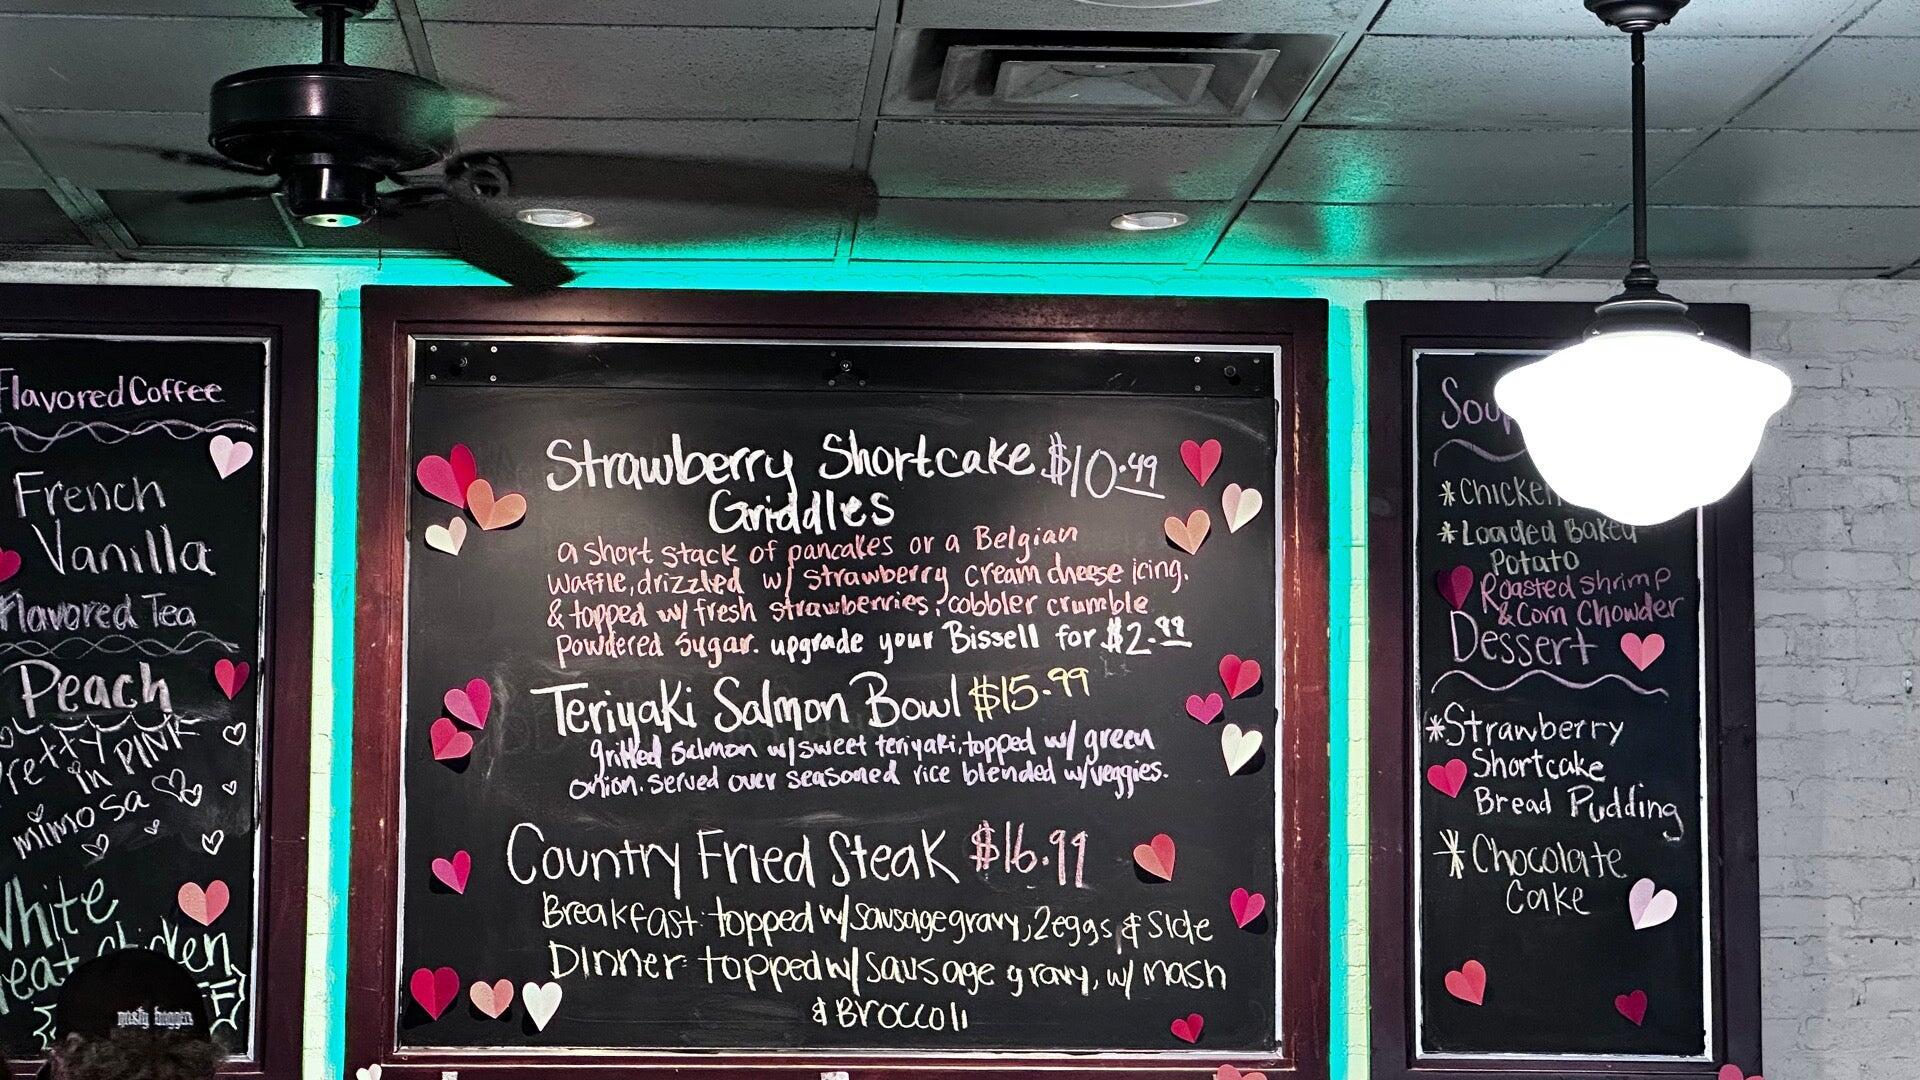 Flavored Coffee
French
Vanilla
Flavored Tea
Peach
Pretty
in PINK
mimosa
White
Chicken
Strawberry Shortcake $10.49
Griddles
a short stack of pancakes or a Belgian
waffle, drizzled w/ strawberry cream cheese icing.
& topped w/ fresh strawberries, cobbler crumble
powdered sugar. upgrade your Bissell for $2.99
Teriyaki Salmon Bowl $15.99
grilled salmon w/sweet teriyaki, topped w/ green
onion. served over seasoned rice blended w/veggies.
Country Fried Steak $16.99
Breakfast: topped w/sausage gravy, 2eggs & side
Dinner: topped w/ sausage gravy, w/ mash
& Broccoli
*Chicken
*Loaded Baked
Potato
Roasted shrimp
& Corn Chowder
Dessert
*Strawberry
Shortcake
Bread Pudding
*Chocolate
Cake